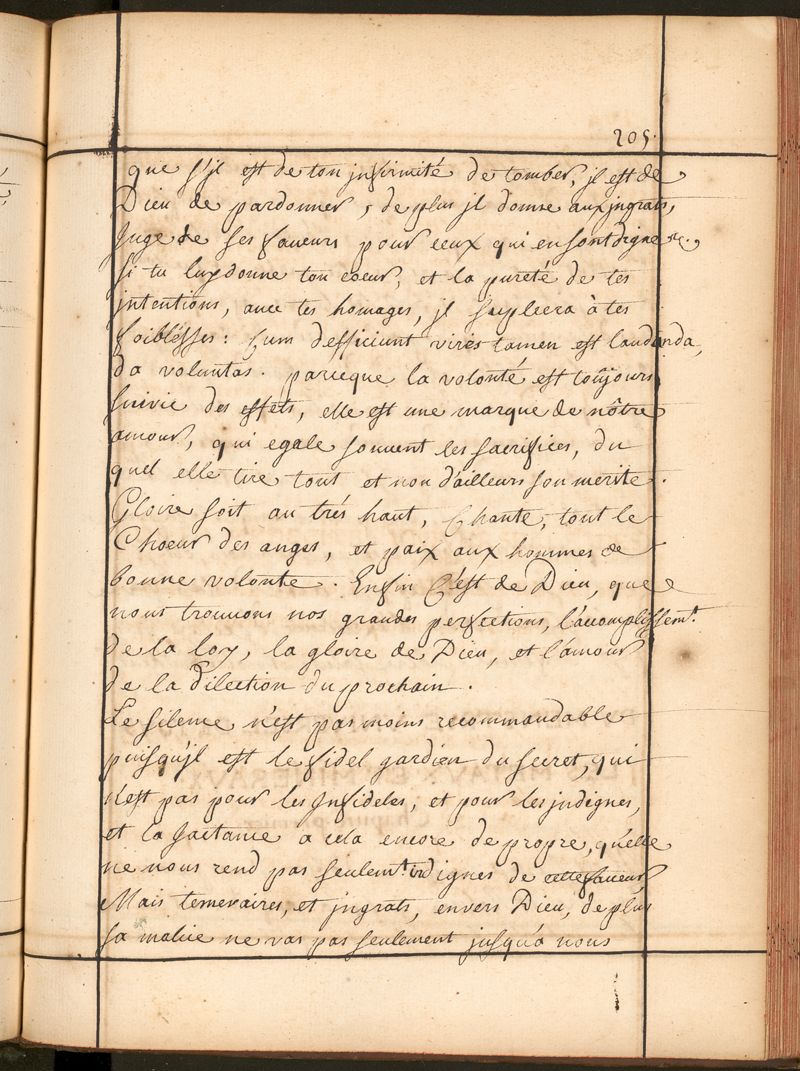 205.
que s'jl est de ton jnfirmité de tomber, jl est de
Dieu de pardonner, de plus jl donne aux jngrats,
Juge de ses faueurs pour ceux qui en sont digne &c.,
si tu luy donne ton coeur, et la pureté de tes
jntentions, auec tes homages, jl supleera à tes
foiblésses: Cum defficiunt vires tamen est laudanda,
da voluntas. parceque la volonté est toûjours
suivie des effets, elle est une marque de nôtre
amour, qui egale souuent les sacrifices, du
quel elle tire tout et non d'ailleurs son merite.
Gloire soit au trés haut, Chante, tout le
Choeur des anges, et paix aux hommes de
bonne volonte. Enfin C'est de Dieu, que
nous trouuons nos grandes perfections, l'accomplissemt.
de la loy, la gloire de Dieu, et l'amour
de la dilection du prochain.
Le silence n'est pas moins recommandable
puisqu'jl est le fidel gardien du secret, qui
n'est pas pour les Jnfideles, et pour les jndignes,
et la Jactance a cela encore de propre, qu'elle
ne nous rend pas seulemt. indignes de cette faueur
Mais temeraires, et jngrats, envers Dieu, de plus
sa malice ne vas pas seulement jusqu'a nous